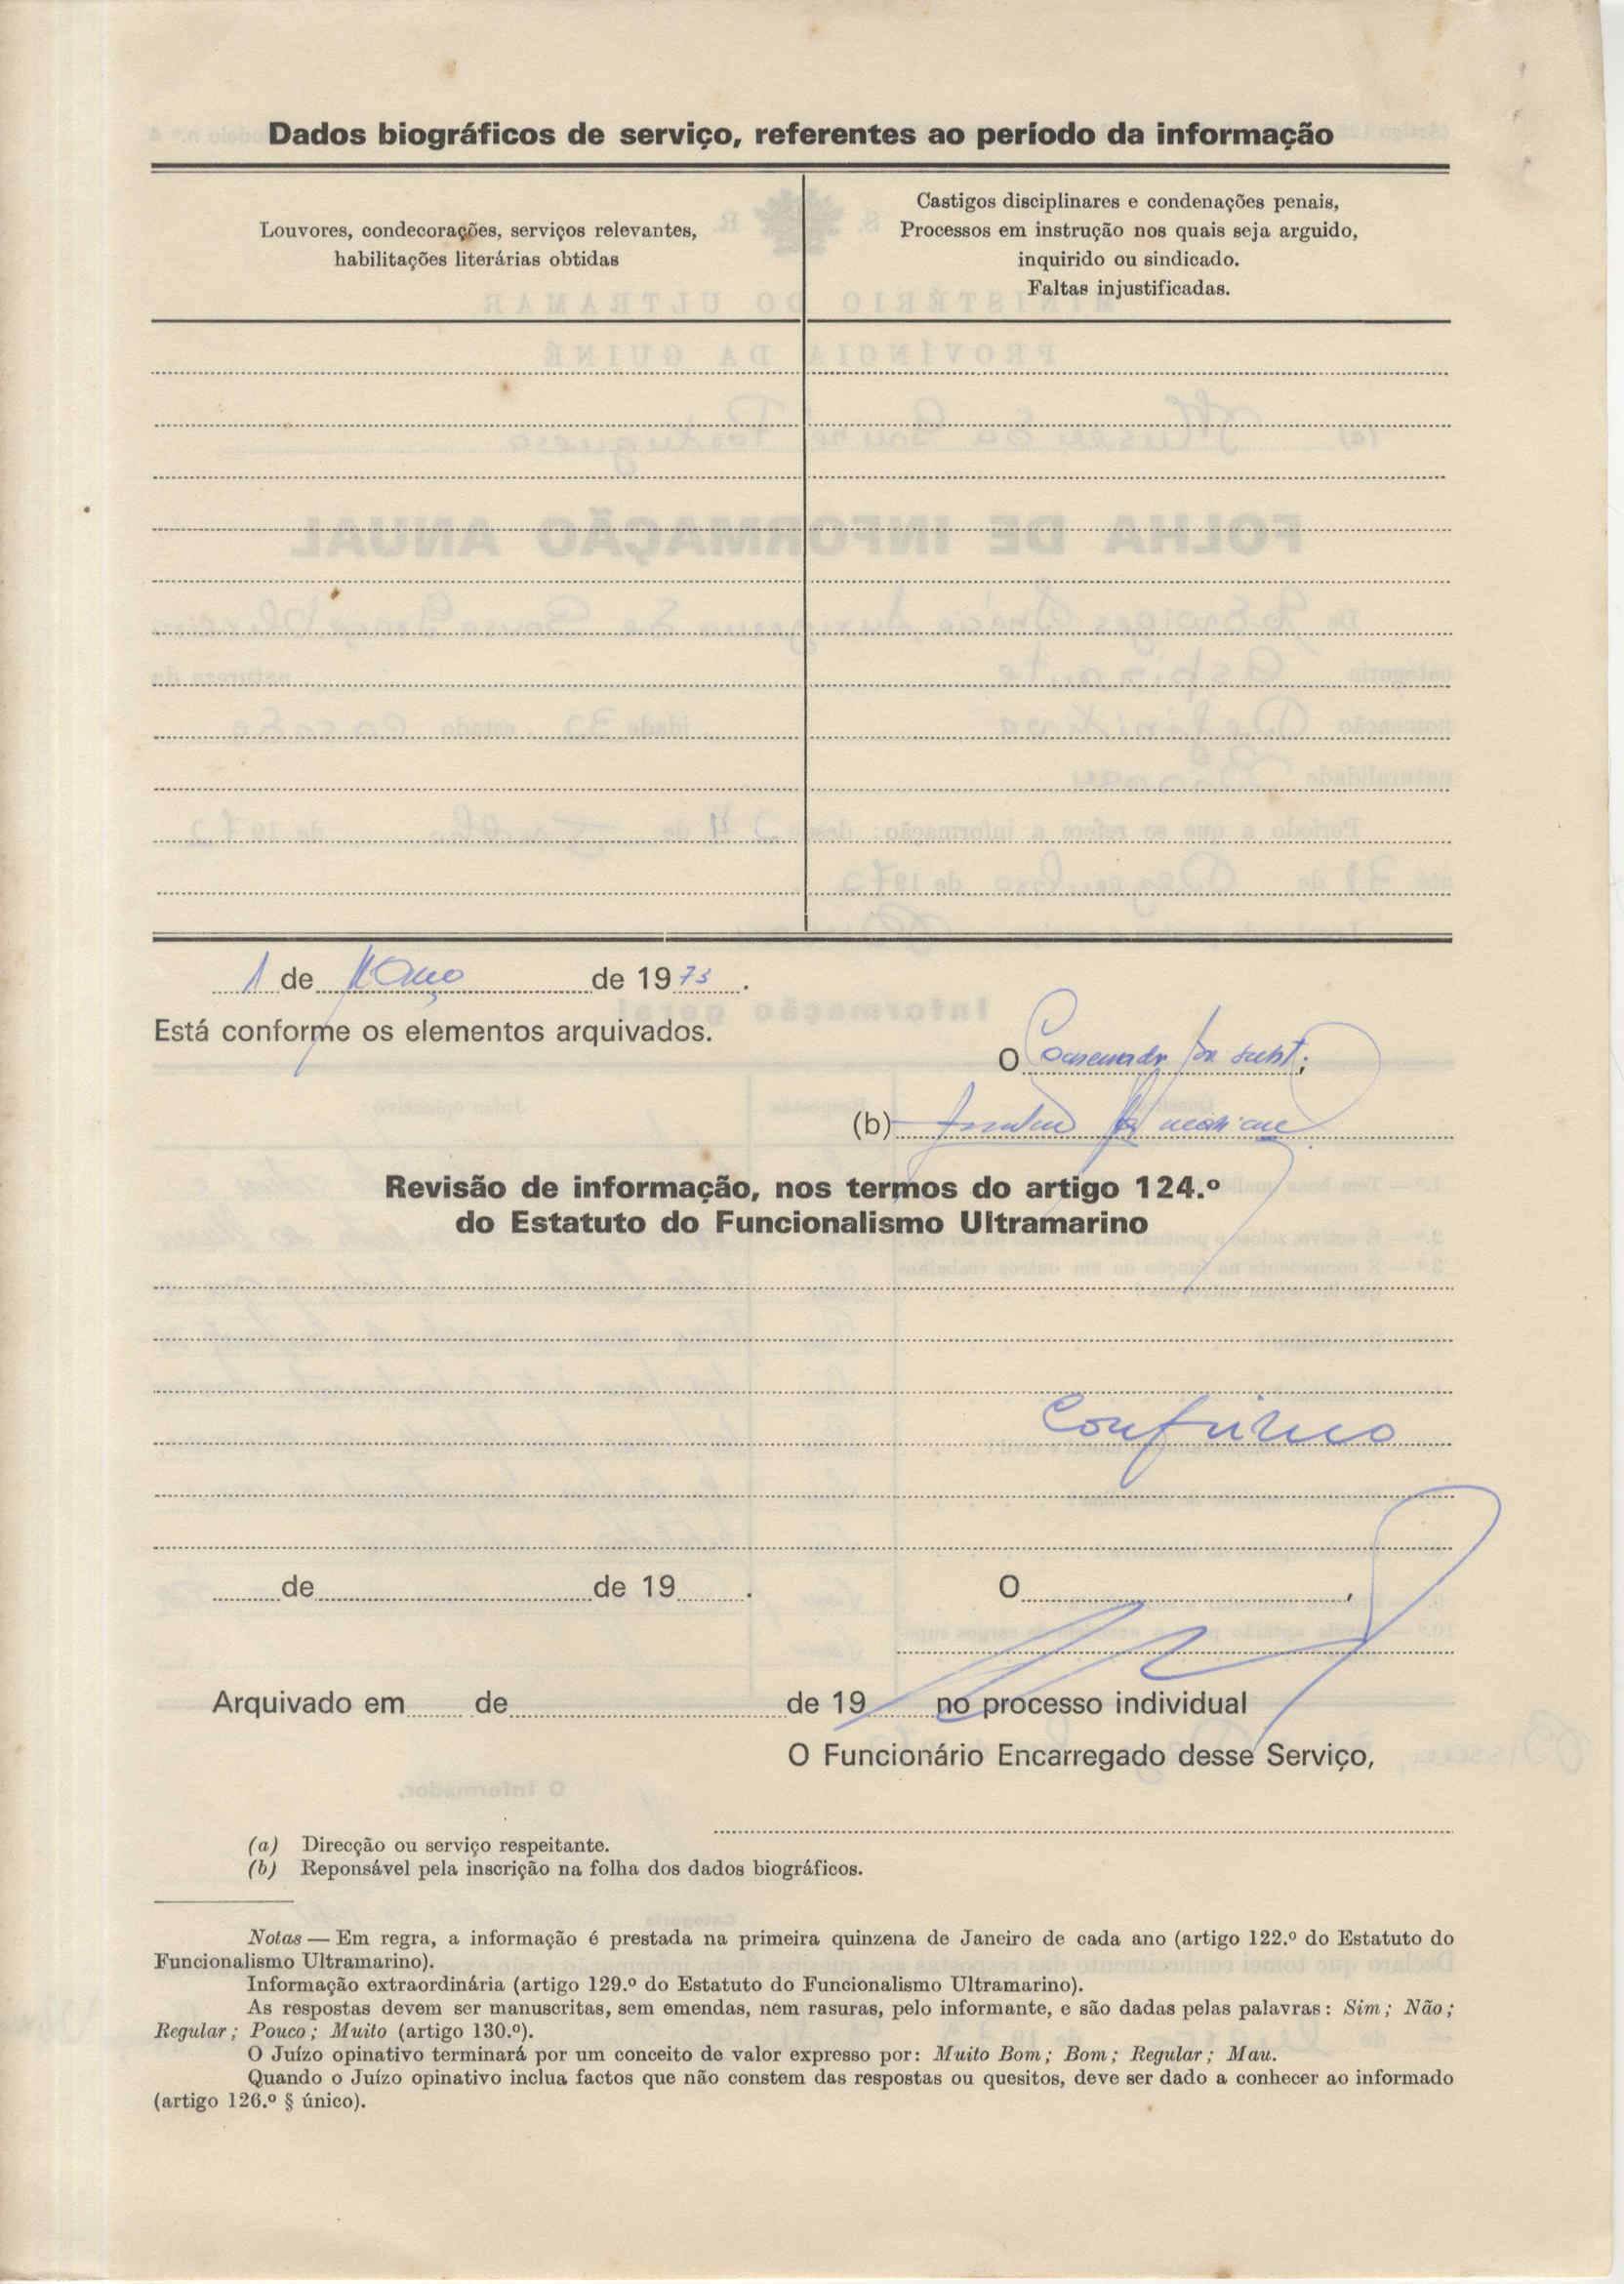 Dados biográficos de serviço, referentes ao período da informação
Louvores, condecorações, serviços relevantes,
habilitações literárias obtidas
Castigos disciplinares e condenações penais,
Processos em instrução nos quais seja arguido,
inquirido ou sindicado.
Faltas injustificadas.
1 de Março de 1973.
Está conforme os elementos arquivados.
O Conservador por subst.,
(b)
Revisão de informação, nos termos do artigo 124.º
do Estatuto do Funcionalismo Ultramarino
Confirmo
de de 19 .
O ,
Arquivado em de de 19 no processo individual
O Funcionário Encarregado desse Serviço,
(a) Direcção ou serviço respeitante.
(b) Reponsável pela inscrição na folha dos dados biográficos.
Notas — Em regra, a informação é prestada na primeira quinzena de Janeiro de cada ano (artigo 122.º do Estatuto do
Funcionalismo Ultramarino).
Informação extraordinária (artigo 129.º do Estatuto do Funcionalismo Ultramarino).
As respostas devem ser manuscritas, sem emendas, nem rasuras, pelo informante, e são dadas pelas palavras: Sim; Não;
Regular; Pouco; Muito (artigo 130.º).
O Juízo opinativo terminará por um conceito de valor expresso por: Muito Bom; Bom; Regular; Mau.
Quando o Juízo opinativo inclua factos que não constem das respostas ou quesitos, deve ser dado a conhecer ao informado
(artigo 126.º § único).